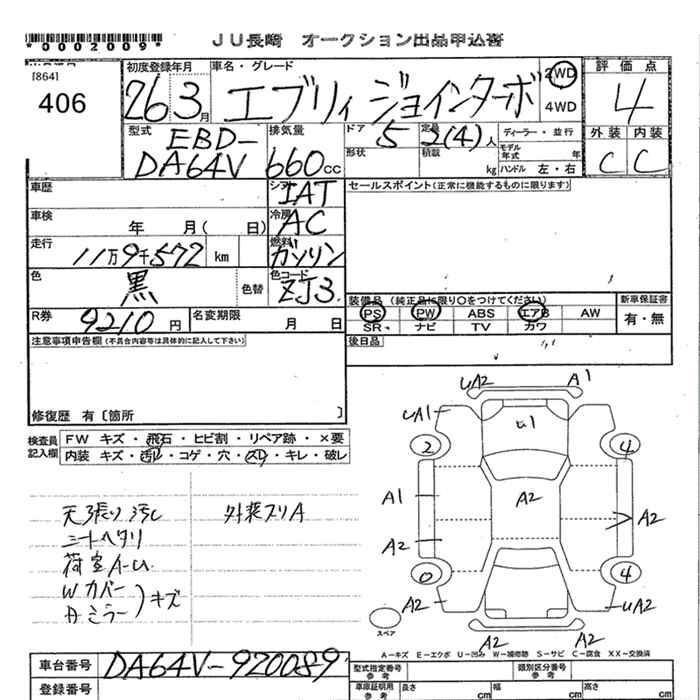 *0002009*
JU長崎 オークション出品申込書
[864]
406
初度登録年月
26年3月
車名・グレード
エブリィ ジョインターボ
2WD
4WD
評価点
4
型式
EBD-
DA64V
排気量
660cc
ドア
5
定員
2(4)人
ディーラー・並行
外装 内装
C C
形状
積載
kg
モデル年式 年
ハンドル 左・右
車歴
シフト
IAT
セールスポイント(正常に機能するものに限ります)
車検
年 月( 日)
冷房
AC
走行
11万9千572 km
燃料
ガソリン
色
黒
色替
色コード
ZJ3
装備品 (純正品に限り○をつけてください)
新車保証書
PS PW ABS エアB AW
SR ナビ TV カワ
有・無
R券
9210円
名変期限
月 日
後日品
注意事項申告欄(不具合内容等は具体的に記入して下さい)
修復歴 有〔箇所 〕
検査員
記入欄
FW キズ・飛石・ヒビ割・リペア跡・×要
内装 キズ・汚れ・コゲ・穴・スレ・キレ・破レ
天張り汚れ
シートヘタリ
荷室A-U
Wカバー
Rミラー
キズ
外装スリA
uA2 A1
uA1
u1
2 4
A1
A2
A2
A2
0 4
A2 uA2
スペア
A2 A2
A-キズ E-エクボ U-凹み W-補修跡 S-サビ C-腐食 XX-交換済
車台番号
DA64V-920089
型式指定番号
参考
類別区分番号
参考
登録番号
車庫証明用
参考
長さ cm
幅 cm
高さ cm